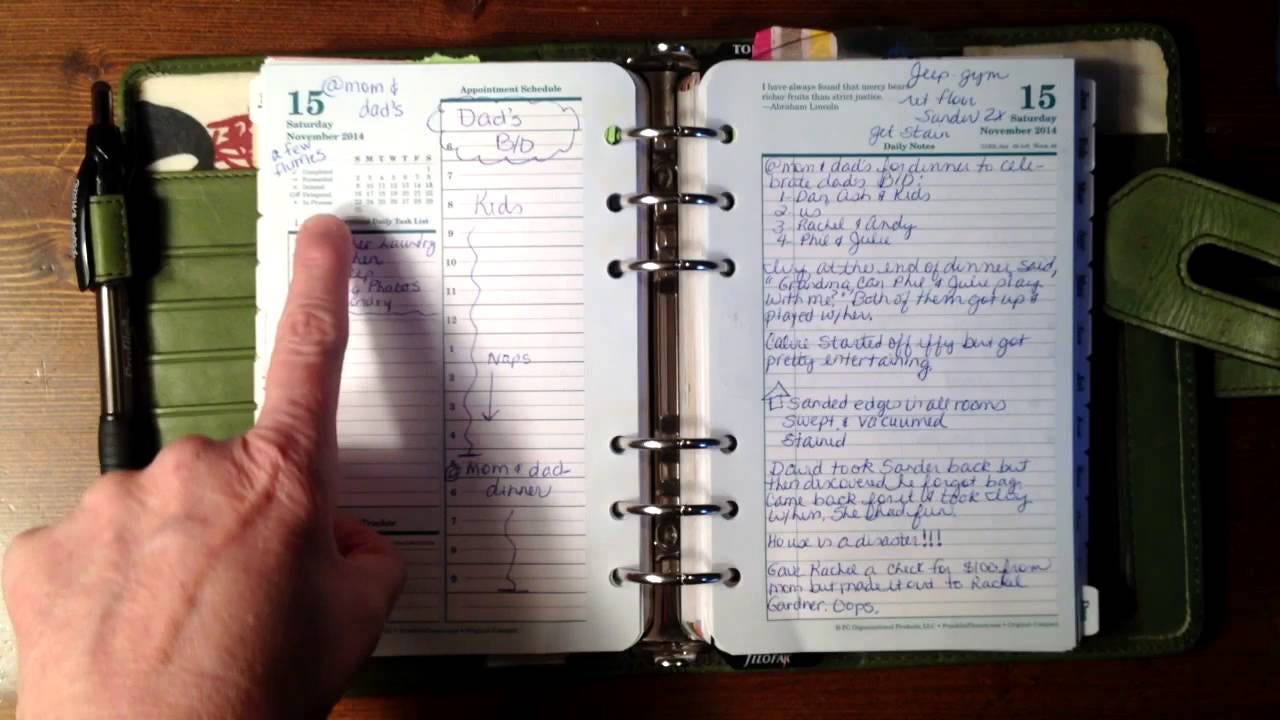 15
@mom &
dad's
Saturday
November 2014
a few
flurries
S M T W T F S
Daily Task List
Laundry
Photos
Tracker
Appointment Schedule
Dad's
B/D
6
7
8 Kids
9
10
11
12
1
Naps
2
3
4
@ mom & dad
dinner
6
7
8
9
TO
I have always found that mercy bears
richer fruits than strict justice.
—Abraham Lincoln
Jeep-gym
ret floor
Sander 2x
get Stain
15
Saturday
November 2014
Daily Notes
@mom & dad's for dinner to cele-
brate dad's B/D:
1- Dan, Ash & Kids
2- us
3- Rachel & Andy
4- Phil & Julie
at the end of dinner said,
"Grandma, can Phil & Julie play
with me?" Both of them got up &
played w/her.
Started off iffy but got
pretty entertaining.
Sanded edges in all rooms
Swept & vacuumed
Stained
David took Sander back but
then discovered he forgot bag.
Came back for it & took
w/him. She had fun.
House is a disaster!!!
Gave Rachel a check for $100 from
mom but made it out to Rachel
Gardner. Oops.
© FC Organizational Products, LLC • FranklinPlanner.com • Original-Compact
FILOFAX